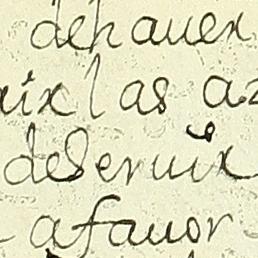 dehauer
uix las az
deseruix
afauor